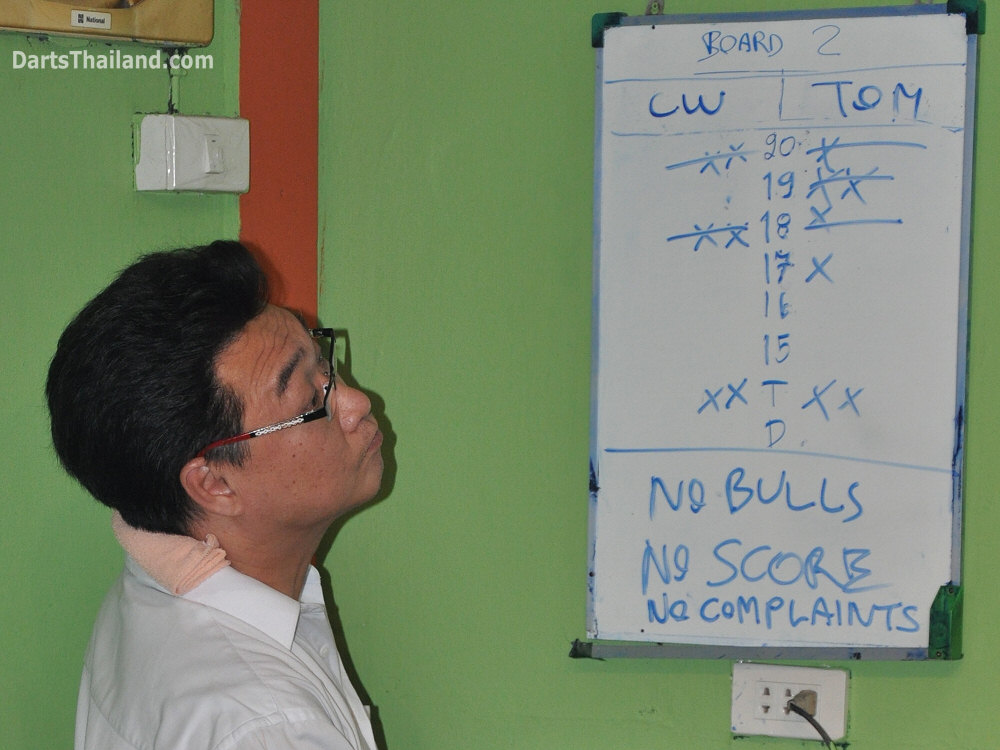 National
DartsThailand.com
BOARD 2
CW TOM
XX 20 X
19 XX
XX 18 X
17 X
16
15
XX T XX
D
NO BULLS
NO SCORE
NO COMPLAINTS